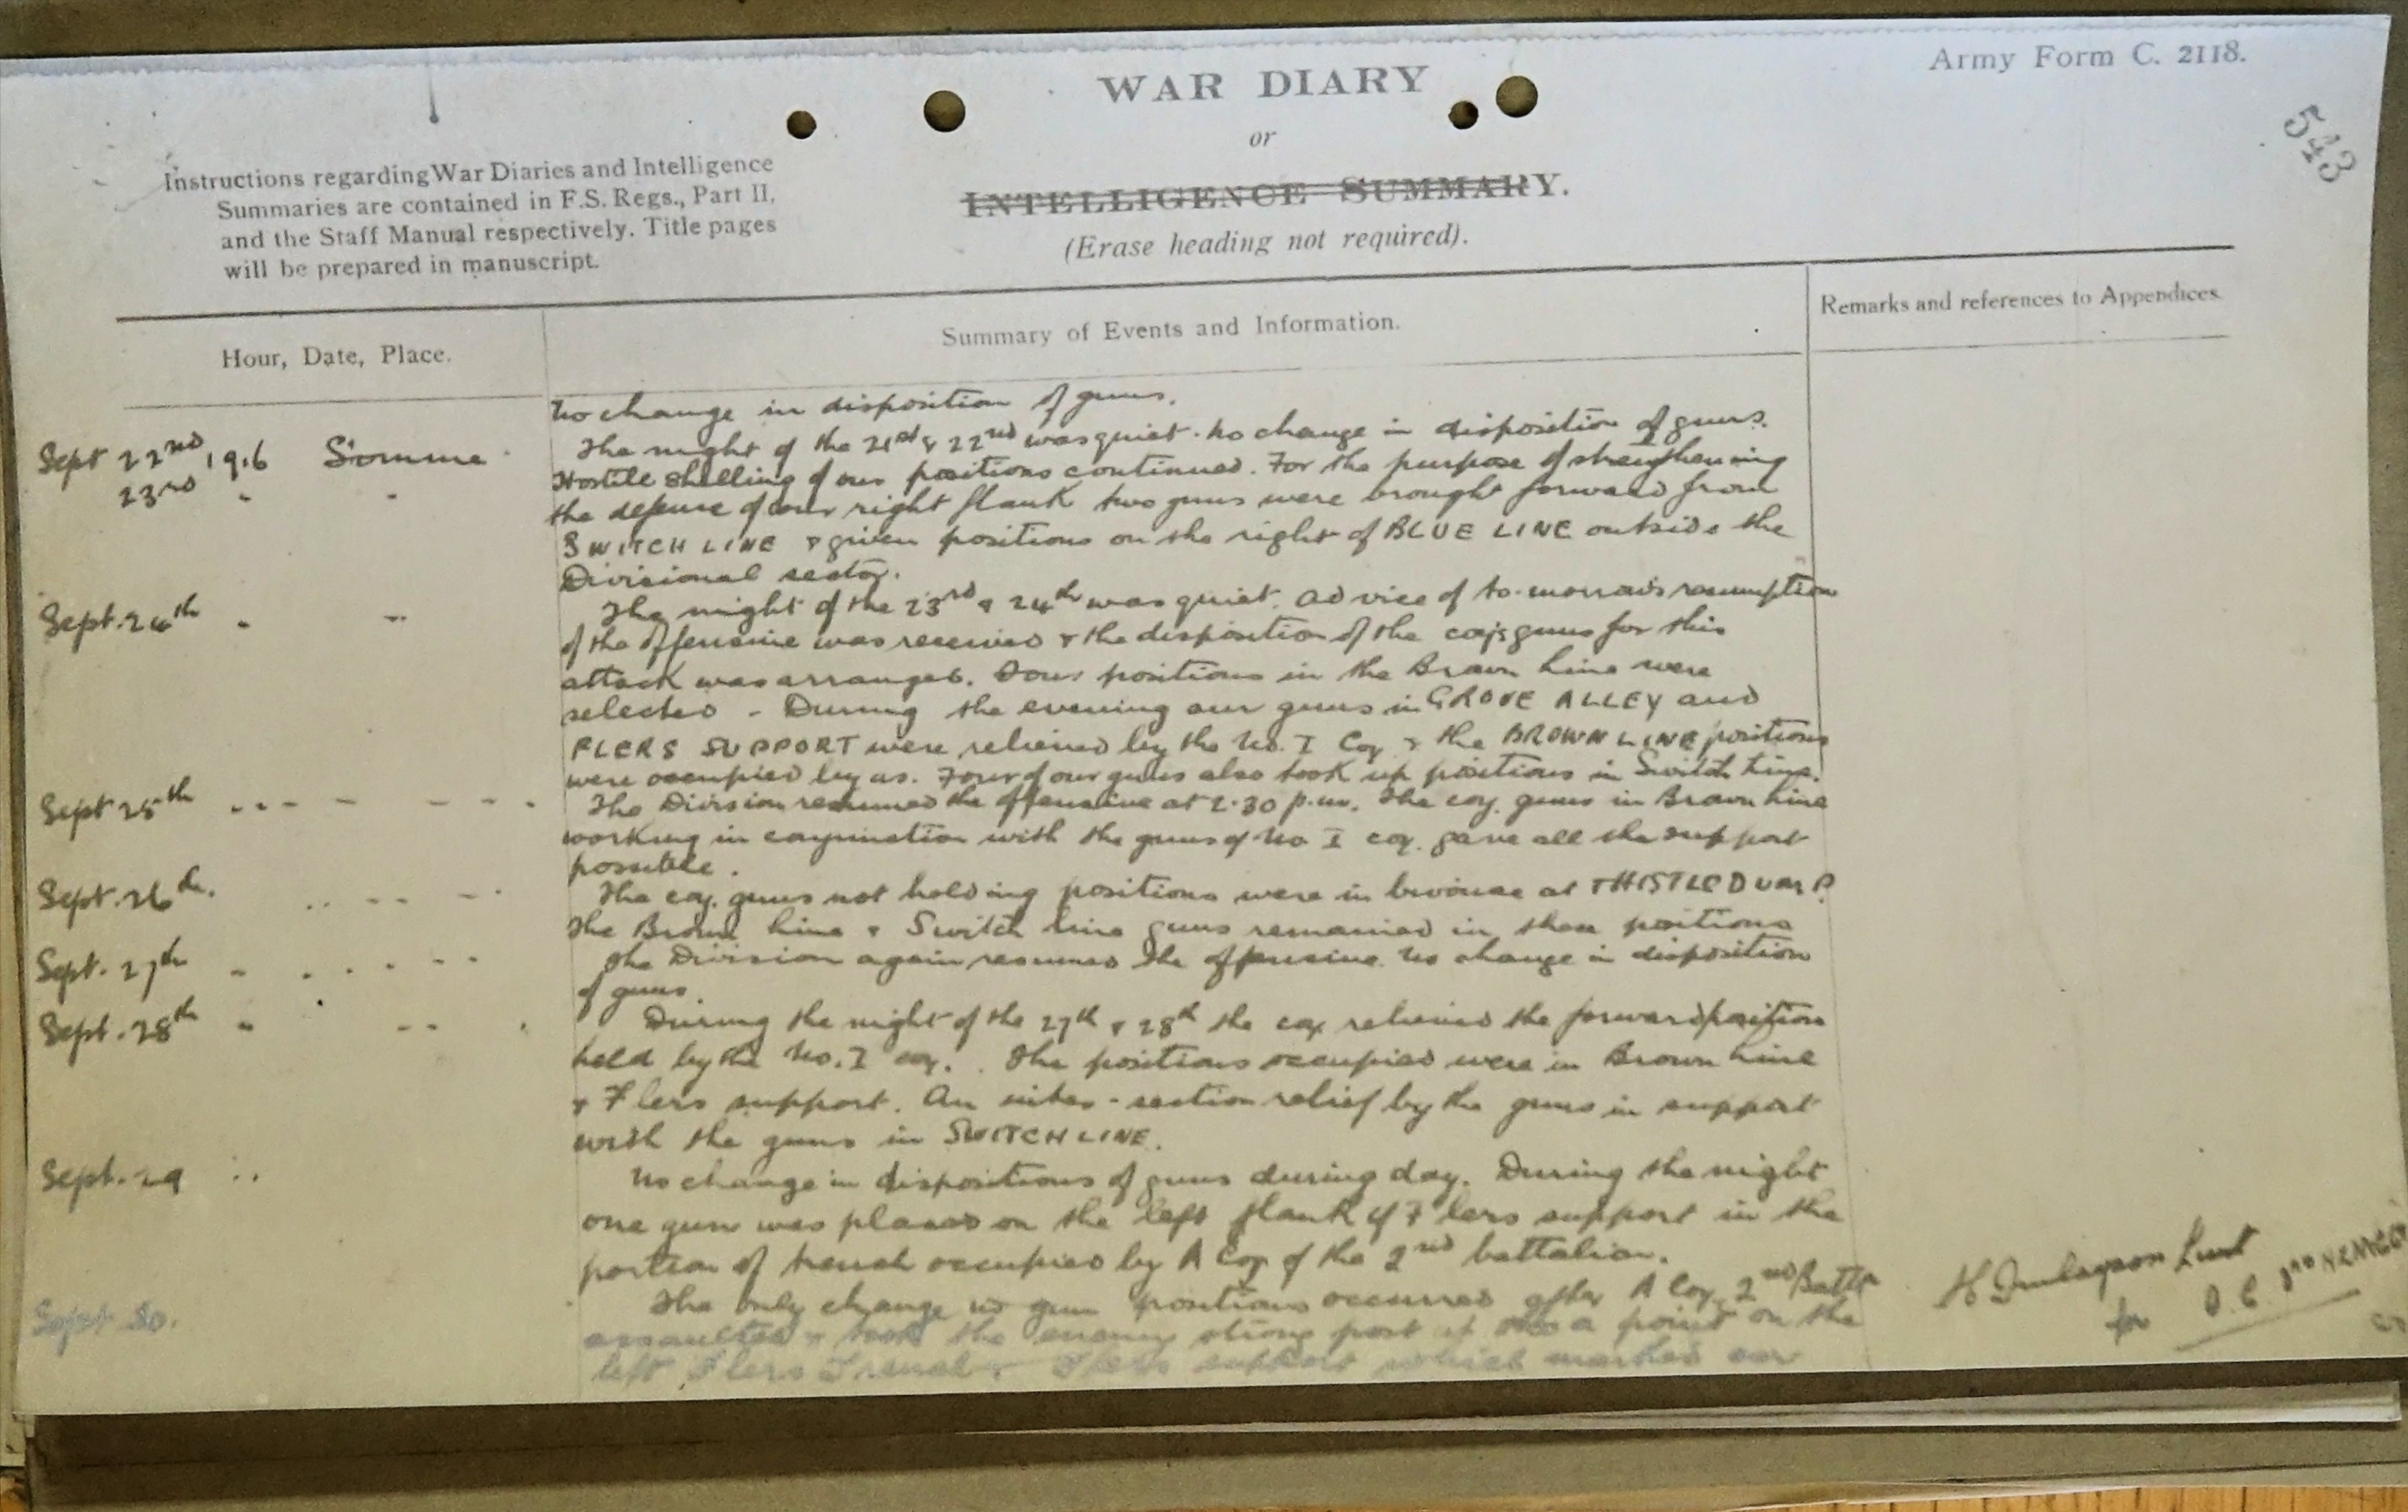 Army Form C. 2118.
543
WAR DIARY
or
INTELLIGENCE SUMMARY.
(Erase heading not required).
Instructions regarding War Diaries and Intelligence
Summaries are contained in F.S. Regs., Part II,
and the Staff Manual respectively. Title pages
will be prepared in manuscript.
Hour, Date, Place.
Summary of Events and Information.
Remarks and references to Appendices.
Sept 22nd 1916 Somme
No change in disposition of guns.
23rd " "
The night of the 21st & 22nd was quiet. No change in disposition of guns.
Hostile shelling of our positions continued. For the purpose of strengthening
the defense of our right flank two guns were brought forward from
SWITCH LINE & given positions on the right of BLUE LINE outside the
Divisional sector.
Sept. 24th "
The night of the 23rd & 24th was quiet. Advice of to-morrow's resumption
of the offensive was received & the disposition of the coy's guns for this
attack was arranged. Four positions in the Brown Line were
selected - During the evening our guns in GROVE ALLEY and
FLERS SUPPORT were relieved by the No. I Coy & the BROWN LINE positions
were occupied by us. Four of our guns also took up positions in Switch Line.
Sept 25th
The Division resumed the offensive at 2.30 p.m. The coy. guns in Brown Line
working in conjunction with the guns of No I coy. gave all the support
possible.
Sept. 26th.
The coy. guns not holding positions were in bivouac at THISTLE DUMP.
The Brown Line & Switch line guns remained in their positions
Sept. 27th
The Division again resumed the offensive. No change in disposition
of guns.
Sept. 28th "
During the night of the 27th & 28th the coy relieved the forward position
held by the No. I coy. The positions occupied were in Brown Line
& Flers support. An inter-section relief by the guns in support
with the guns in SWITCH LINE.
Sept. 29
No change in dispositions of guns during day. During the night
one gun was placed on the left flank of Flers support in the
portion of trench occupied by A Coy of the 2nd battalion.
Sept 30.
The only change in gun positions occurred after A Coy 2nd Battn
assaulted & took the enemy strong post at a point on the
left Flers Trench & Flers support which marked our
H Lieut
for O.C.